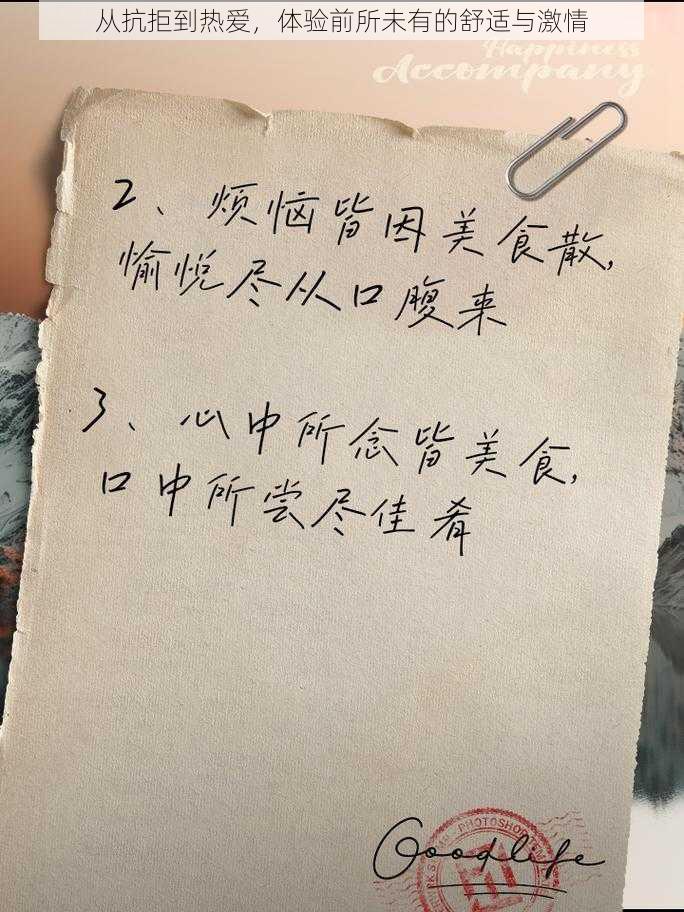 从抗拒到热爱，体验前所未有的舒适与激情
Happiness
Accompany
2、烦恼皆因美食散，
愉悦尽从口腹来
3、心中所念皆美食，
口中所尝尽佳肴
PHOTOSHOP
Goodlife